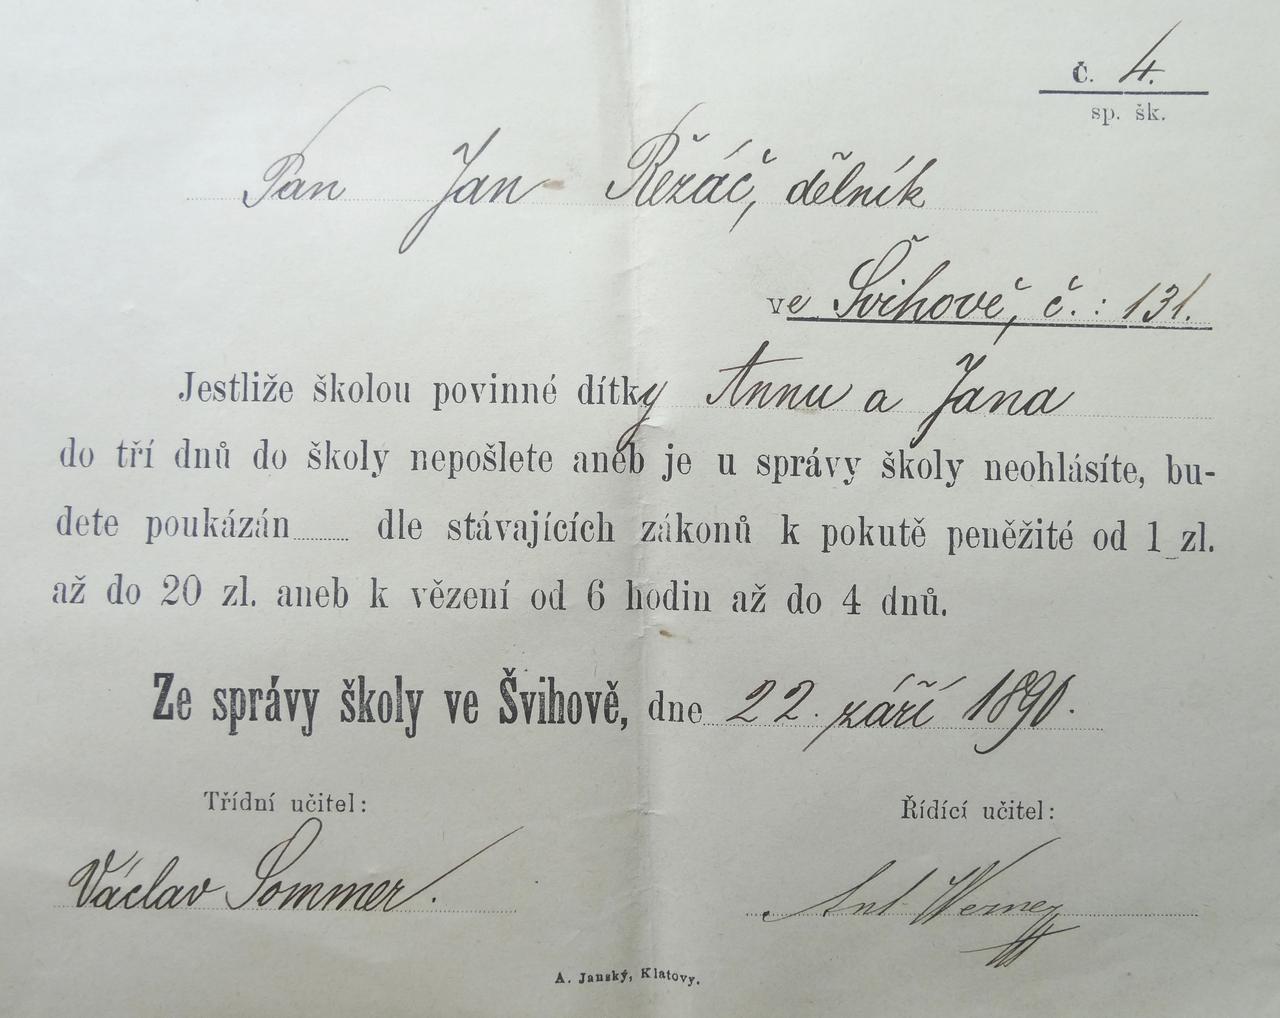 č. 4.
sp. šk.
Pan Jan Řezáč, dělník
ve Švihově, č.: 131.
Jestliže školou povinné dítky Annu a Jana
do tří dnů do školy nepošlete aneb je u správy školy neohlásíte, bu-
dete poukázán dle stávajících zákonů k pokutě peněžité od 1 zl.
až do 20 zl. aneb k vězení od 6 hodin až do 4 dnů.
Ze správy školy ve Švihově, dne 22. září 1890.
Třídní učitel:
Řídící učitel:
Václav Sommer.
Ant. Werner
A. Janský, Klatovy.